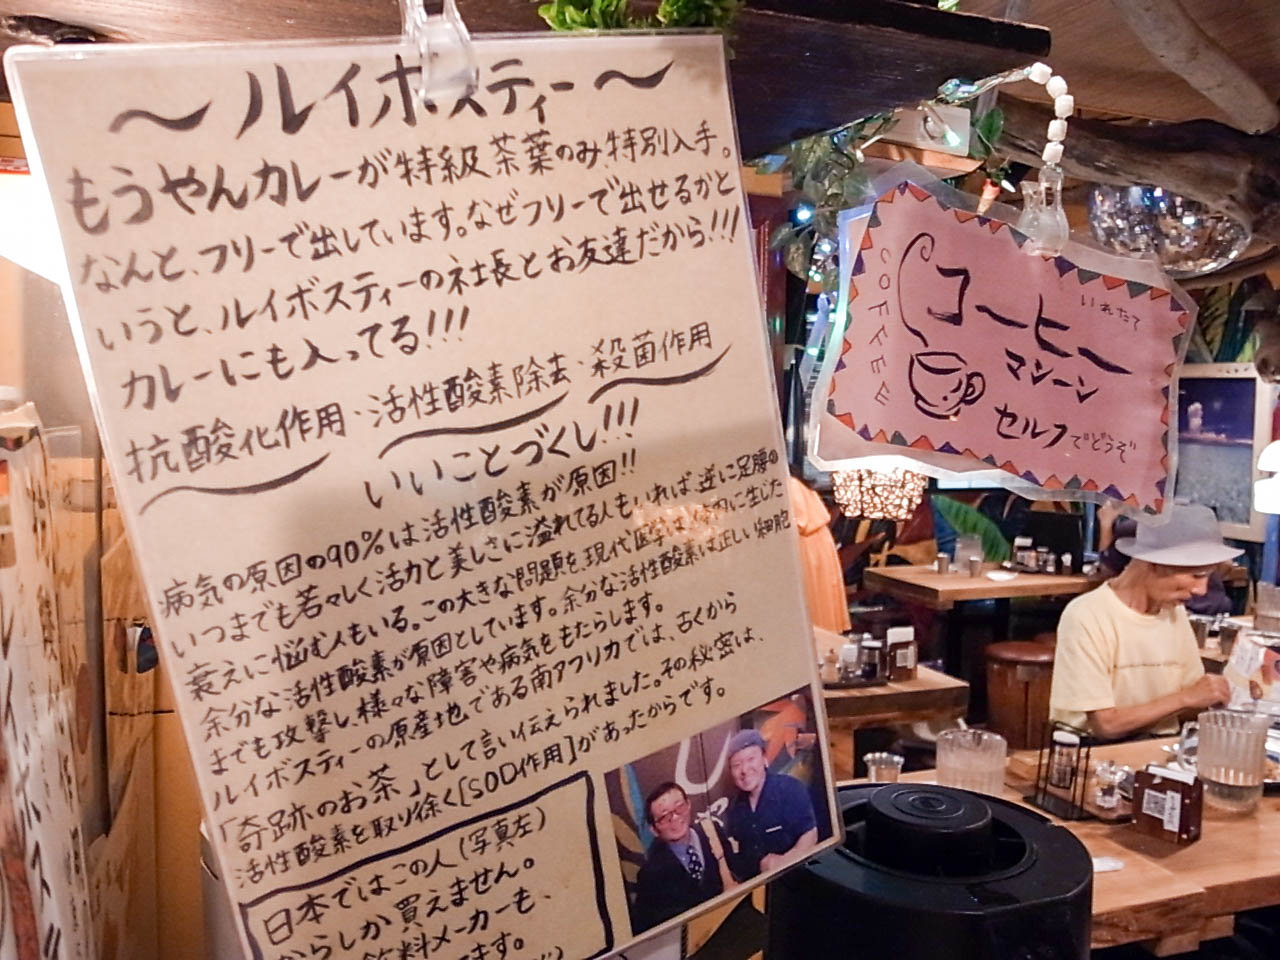 ～ルイボスティー～
もうやんカレーが特級茶葉のみ特別入手。
なんと、フリーで出しています。なぜフリーで出せるかと
いうと、ルイボスティーの社長とお友達だから!!!
カレーにも入ってる!!!
抗酸化作用・活性酸素除去・殺菌作用
いいことづくし!!!
病気の原因の90%は活性酸素が原因!!
いつまでも若々しく活力と美しさに溢れてる人もいれば逆に足腰の
衰えに悩む人もいる。この大きな問題を、現代医学は、体内に生じた
余分な活性酸素が原因としています。余分な活性酸素は正しい細胞
までも攻撃し、様々な障害や病気をもたらします。
ルイボスティーの原産地である南アフリカでは、古くから
「奇跡のお茶」として言い伝えられました。その秘密は、
活性酸素を取り除く[SOD作用]があったからです。
日本ではこの人(写真左)
からしか買えません。
飲料メーカーも、
ます。
COFFEE
いれたて
コーヒー
マシーン
セルフでどうぞ